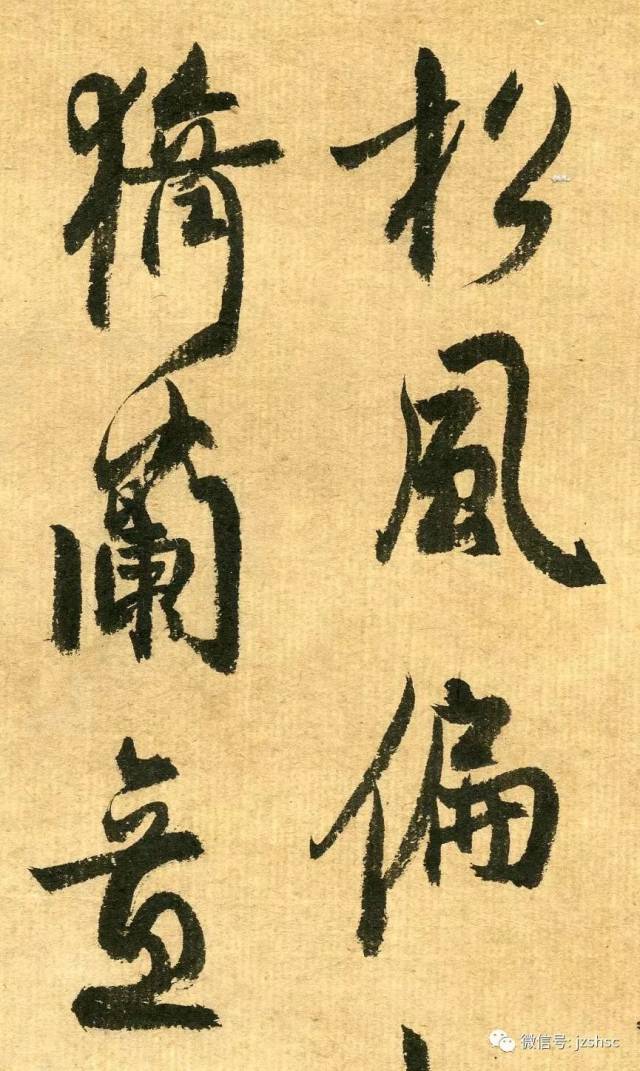 松風偏
猗蘭意
微信号: jzshsc